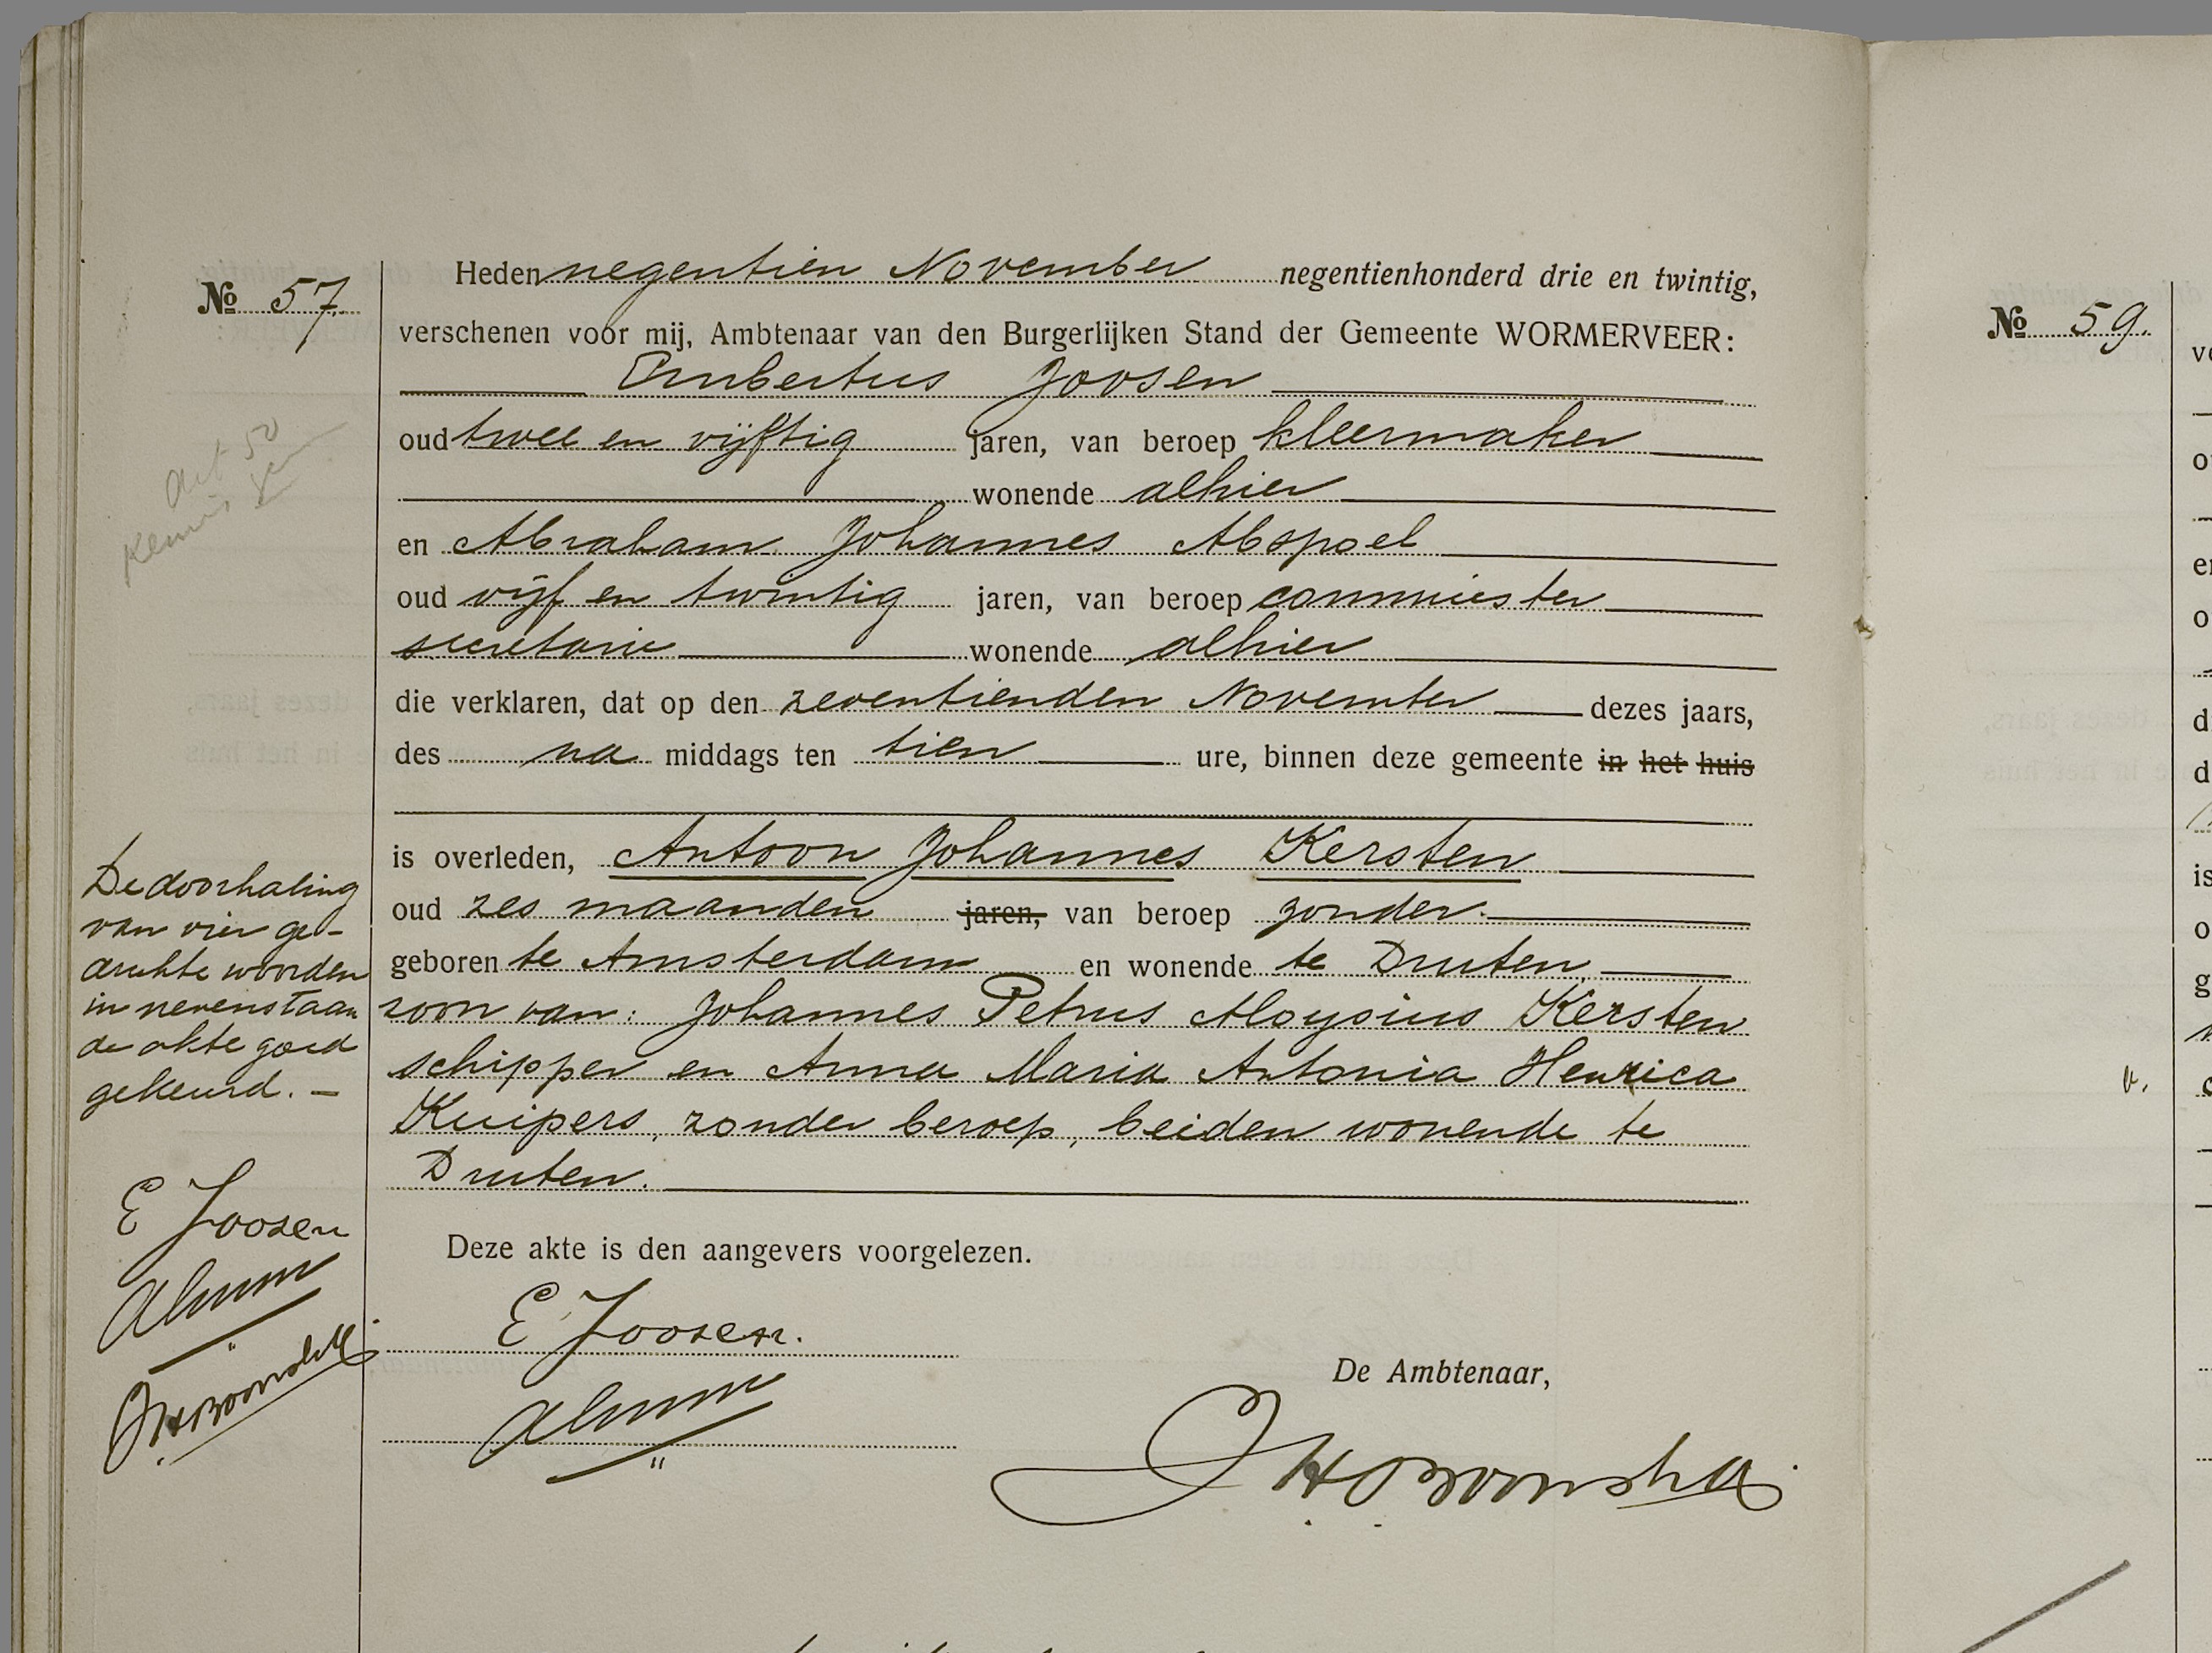 No 57.
Heden negentien November negentienhonderd drie en twintig,
verschenen voor mij, Ambtenaar van den Burgerlijken Stand der Gemeente WORMERVEER:
Embertus Joosen
oud twee en vijftig jaren, van beroep kleermaker
wonende alhier
en Abraham Johannes Abspoel
oud vijf en twintig jaren, van beroep commies ter
secretarie wonende alhier
die verklaren, dat op den zeventienden November dezes jaars,
des na middags ten tien ure, binnen deze gemeente in het huis
is overleden, Antoon Johannes Kersten
oud zes maanden jaren, van beroep zonder
geboren te Amsterdam en wonende te Druten,
zoon van: Johannes Petrus Aloysius Kersten
schipper en Anna Maria Antonia Henrica
Kuipers, zonder beroep, beiden wonende te
Druten.
Deze akte is den aangevers voorgelezen.
E Joosen.
De Ambtenaar,
art 50
Kennis
De doorhaling
van vier ge-
drukte woorden
in nevenstaan
de akte goed
gekeurd. —
E Joosen
No 59.